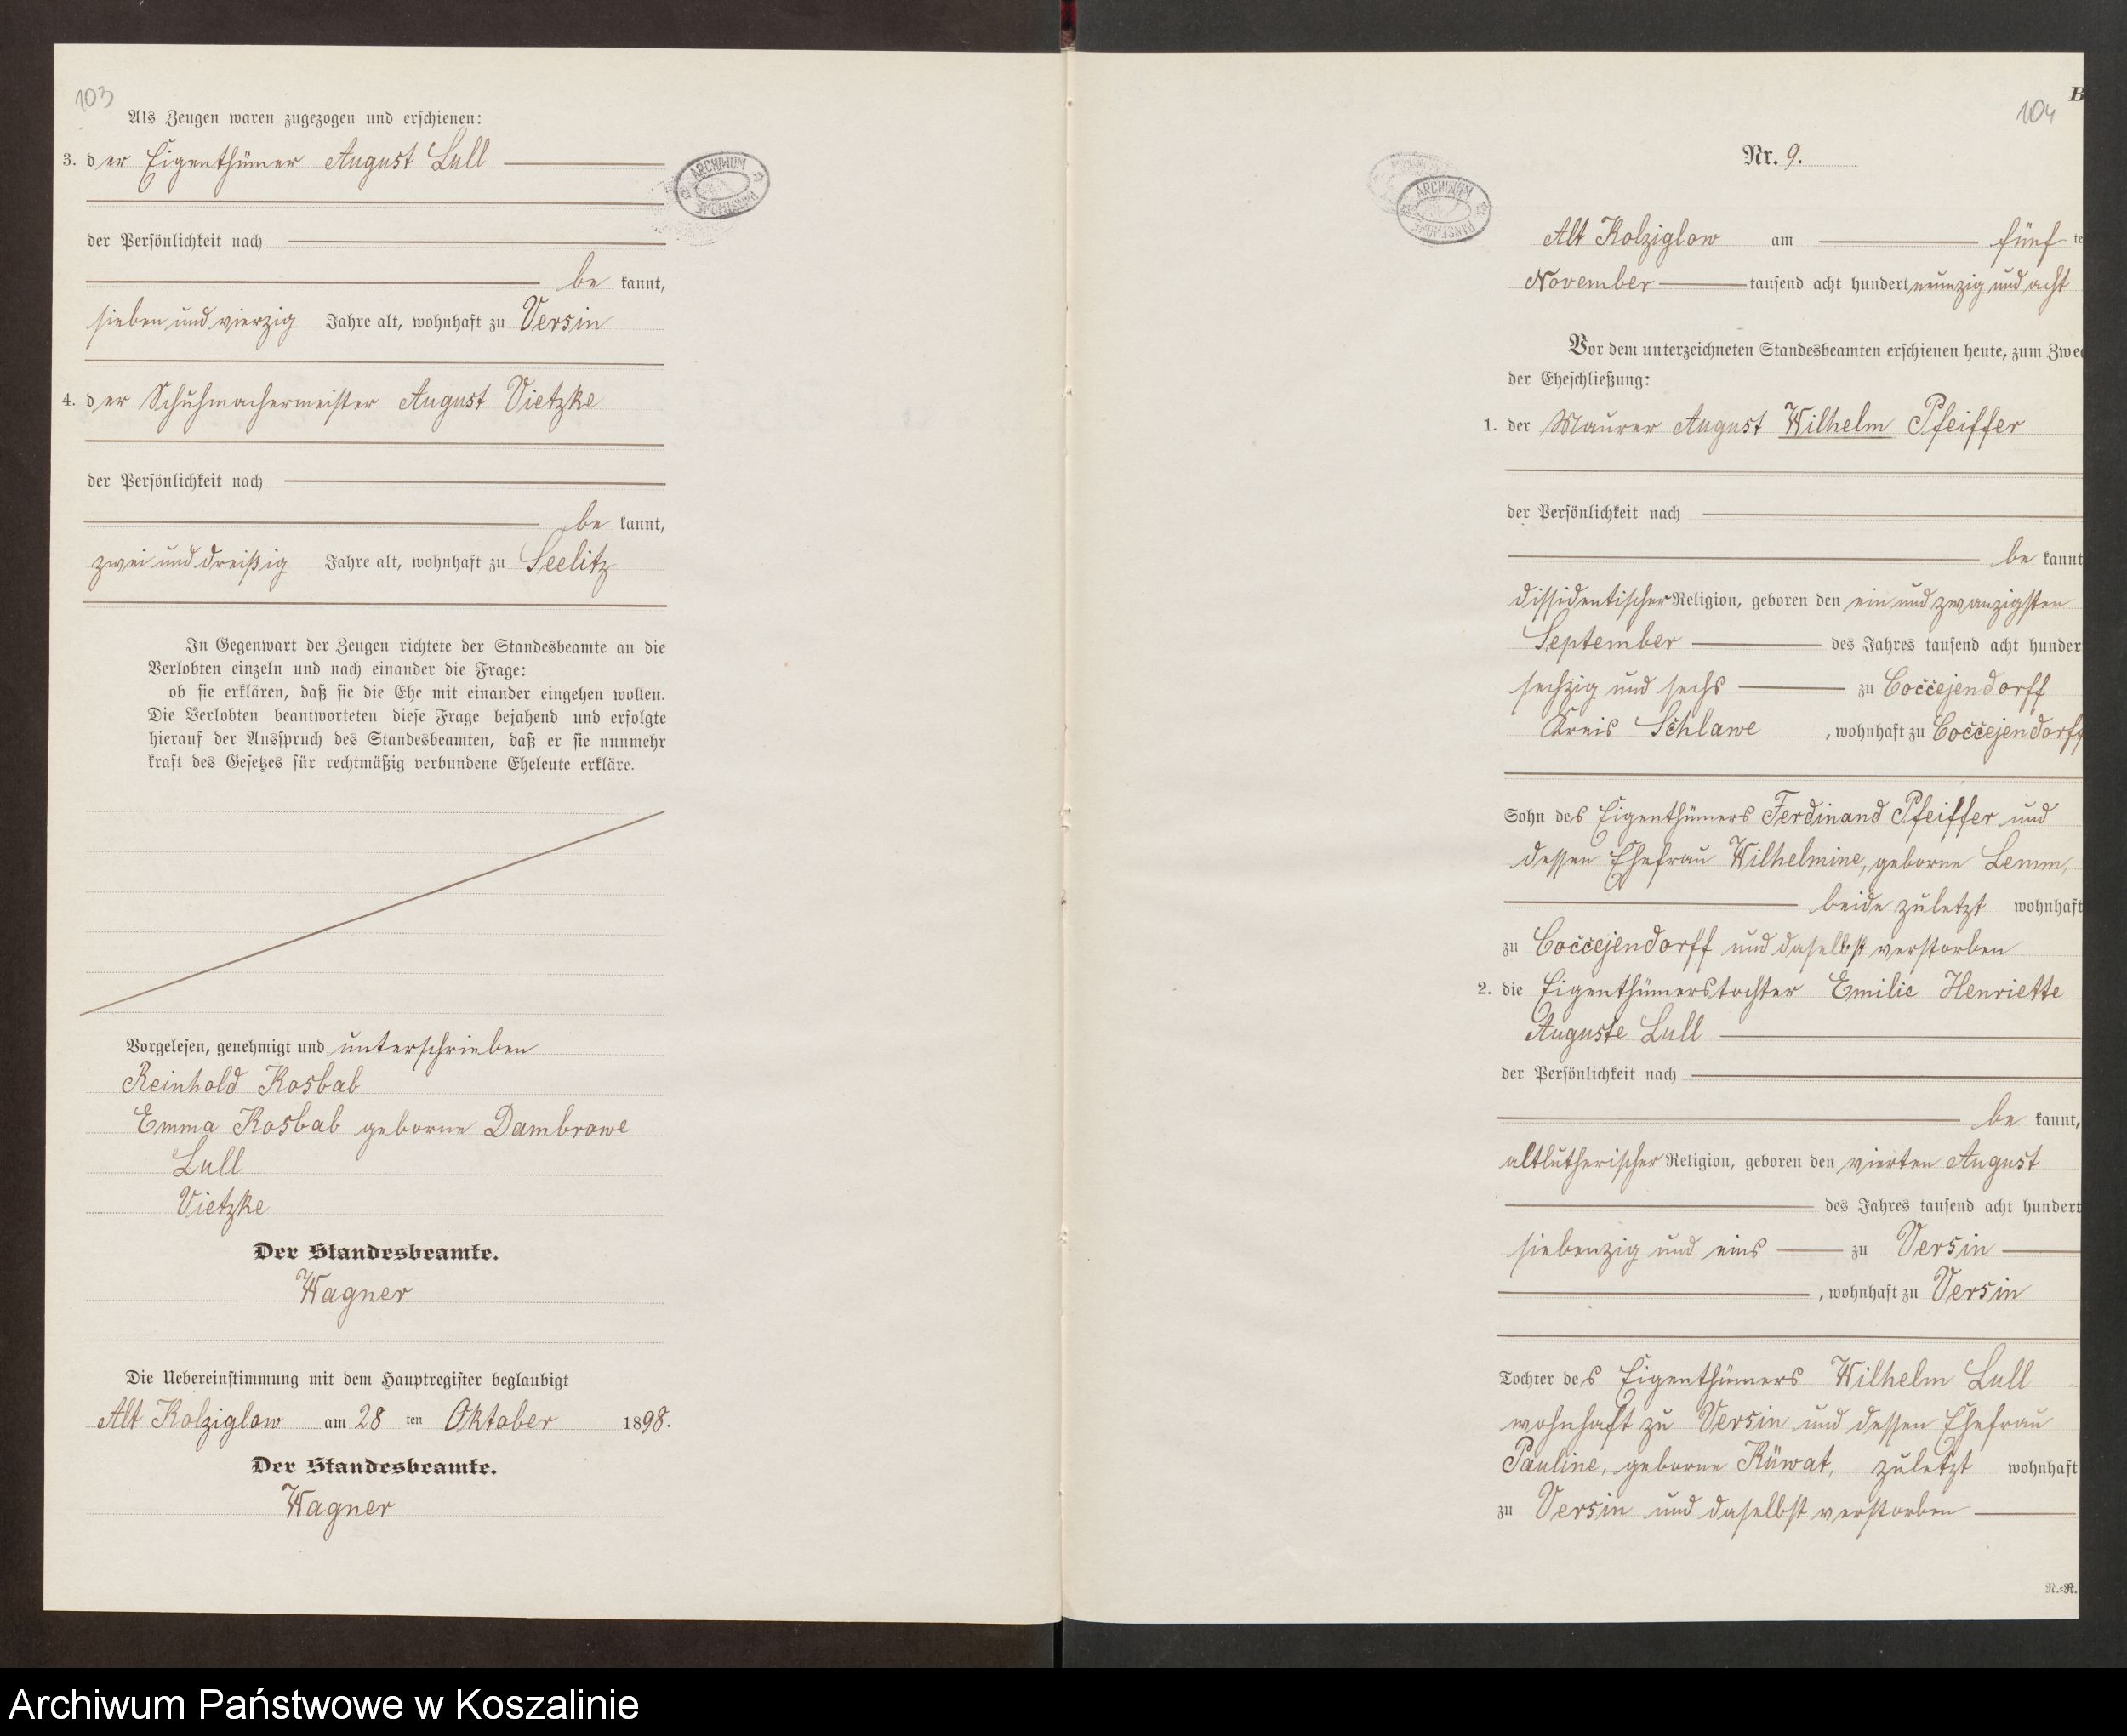 103
Als Zeugen waren zugezogen und erschienen:
3. der Eigenthümer August Lull
der Persönlichkeit nach
be kannt,
sieben und vierzig Jahre alt, wohnhaft zu Versin
4. der Schuhmachermeister August Vietzke
der Persönlichkeit nach
be kannt,
zwei und dreißig Jahre alt, wohnhaft zu Seelitz
In Gegenwart der Zeugen richtete der Standesbeamte an die
Verlobten einzeln und nach einander die Frage:
ob sie erklären, daß sie die Ehe mit einander eingehen wollen.
Die Verlobten beantworteten diese Frage bejahend und erfolgte
hierauf der Ausspruch des Standesbeamten, daß er sie nunmehr
kraft des Gesetzes für rechtmäßig verbundene Eheleute erkläre.
Vorgelesen, genehmigt und unterschrieben
Reinhold Kosbab
Emma Kosbab geborne Dambrowe
Lull
Vietzke
Der Standesbeamte.
Wagner
Die Uebereinstimmung mit dem Hauptregister beglaubigt
Alt Kolziglow am 28 ten Oktober 1898.
Der Standesbeamte.
Wagner
ARCHIWUM PAŃSTWOWE
B
104
Nr. 9.
ARCHIWUM PAŃSTWOWE
Alt Kolziglow am fünf te
November tausend acht hundert neunzig und acht
Vor dem unterzeichneten Standesbeamten erschienen heute, zum Zwec
der Eheschließung:
1. der Maurer August Wilhelm Pfeiffer
der Persönlichkeit nach
be kannt
dissidentischer Religion, geboren den ein und zwanzigsten
September des Jahres tausend acht hunder
sechzig und sechs zu Coccejendorff
Kreis Schlawe, wohnhaft zu Coccejendorff
Sohn des Eigenthümers Ferdinand Pfeiffer und
dessen Ehefrau Wilhelmine, geborne Lemm,
beide zuletzt wohnhaft
zu Coccejendorff und daselbst verstorben
2. die Eigenthümerstochter Emilie Henriette
Auguste Lull
der Persönlichkeit nach
be kannt,
altlutherischer Religion, geboren den vierten August
des Jahres tausend acht hundert
siebenzig und eins zu Versin
, wohnhaft zu Versin
Tochter des Eigenthümers Wilhelm Lull
wohnhaft zu Versin und dessen Ehefrau
Pauline, geborne Küwat, zuletzt wohnhaft
zu Versin und daselbst verstorben
N.=R.
Archiwum Państwowe w Koszalinie